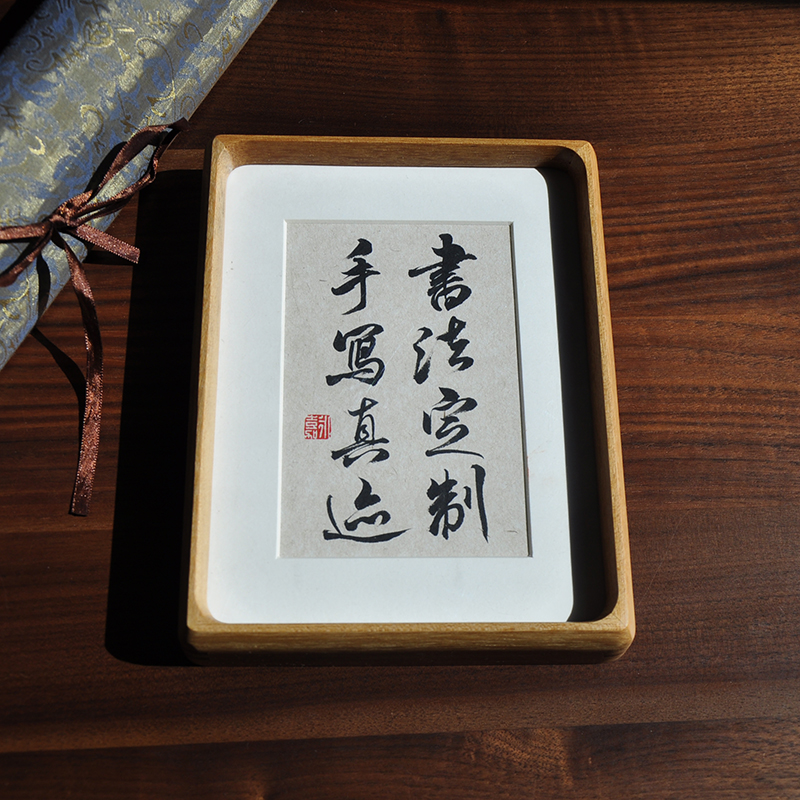 書法定制
手寫真迹